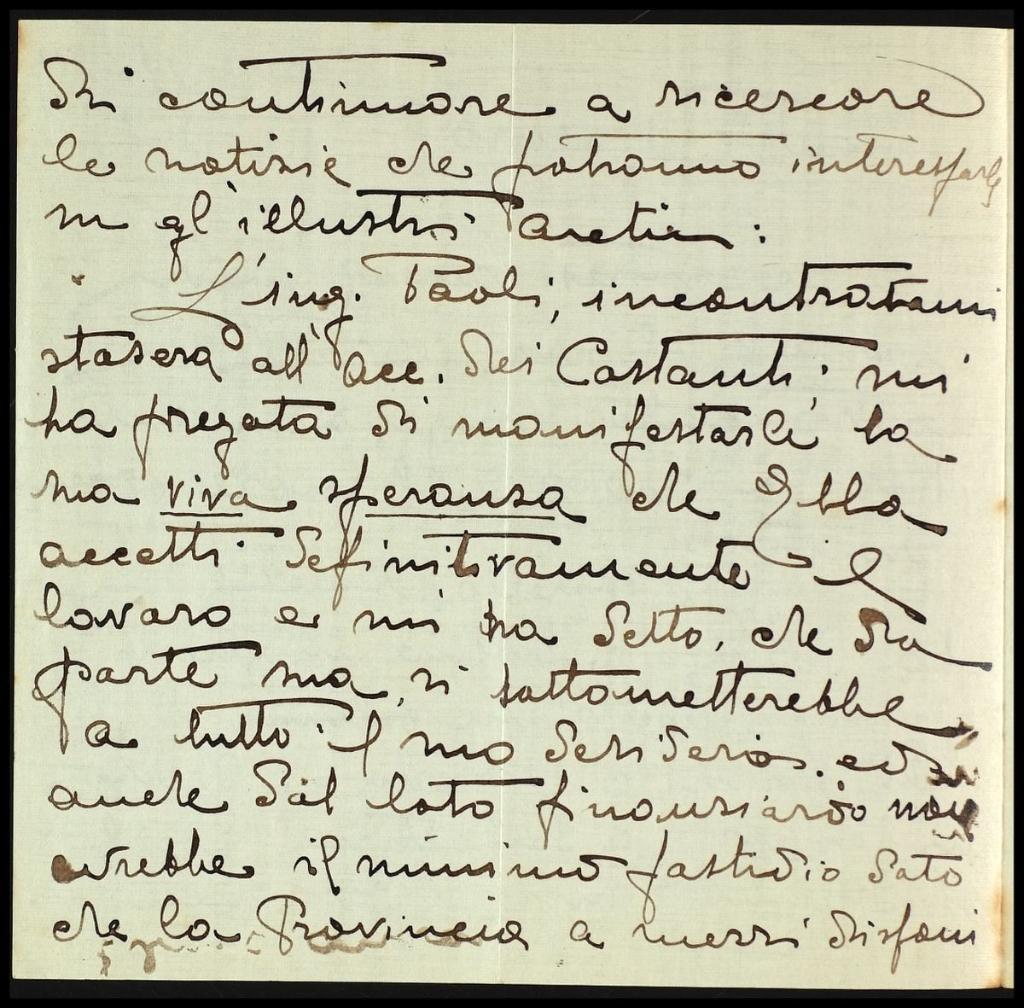 di continuare a ricercare
le notizie che potranno interessarle
su gl'illustri aretini:
L'ing. Paoli, incontratomi
stasera all'Acc. dei Costanti, mi
ha pregata di manifestarle la
sua viva speranza che Ella
accetti definitivamente il
lavoro e mi ha detto, che da
parte sua, si sottometterebbe
a tutto il suo desiderio. ed
anche dal lato finanziario non
avrebbe il minimo fastidio dato
che la Provincia a mezzi disponi